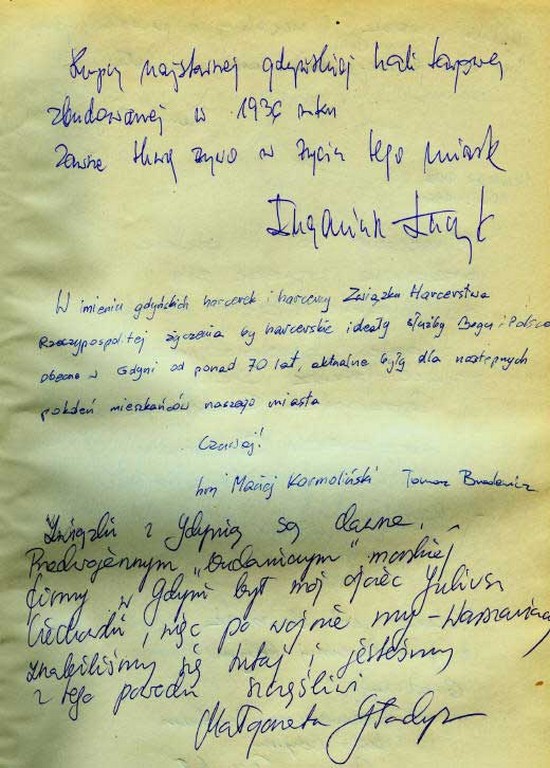 Kupcy najstarszej gdyńskiej hali targowej
zbudowanej w 1936 roku
zawsze tkwią żywo w życiu tego miasta
W imieniu gdyńskich harcerek i harcerzy Związku Harcerstwa
Rzeczypospolitej życzenia by harcerskie ideały służby Bogu i Polsce
obecne w Gdyni od ponad 70 lat, aktualne były dla następnych
pokoleń mieszkańców naszego miasta
Czuwaj!
hm Maciej Karmoliński Tomasz
Związki z Gdynią są dawne.
Przedwojennym morskiej
firmy w Gdyni był mój ojciec Juliusz
i więc po wojnie my - Warszawiacy
znaleźliśmy się tutaj i jesteśmy
z tego powodu szczęśliwi
Małgorzata